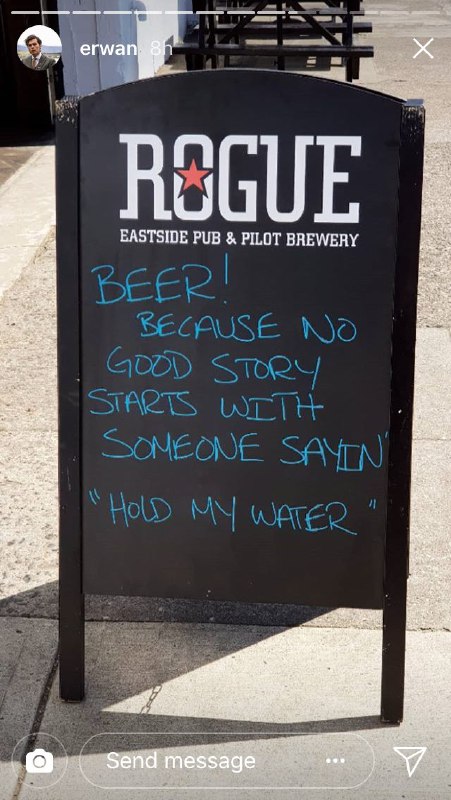 erwan 8h
ROGUE
EASTSIDE PUB & PILOT BREWERY
BEER!
BECAUSE NO
GOOD STORY
STARTS WITH
SOMEONE SAYIN'
"HOLD MY WATER"
Send message